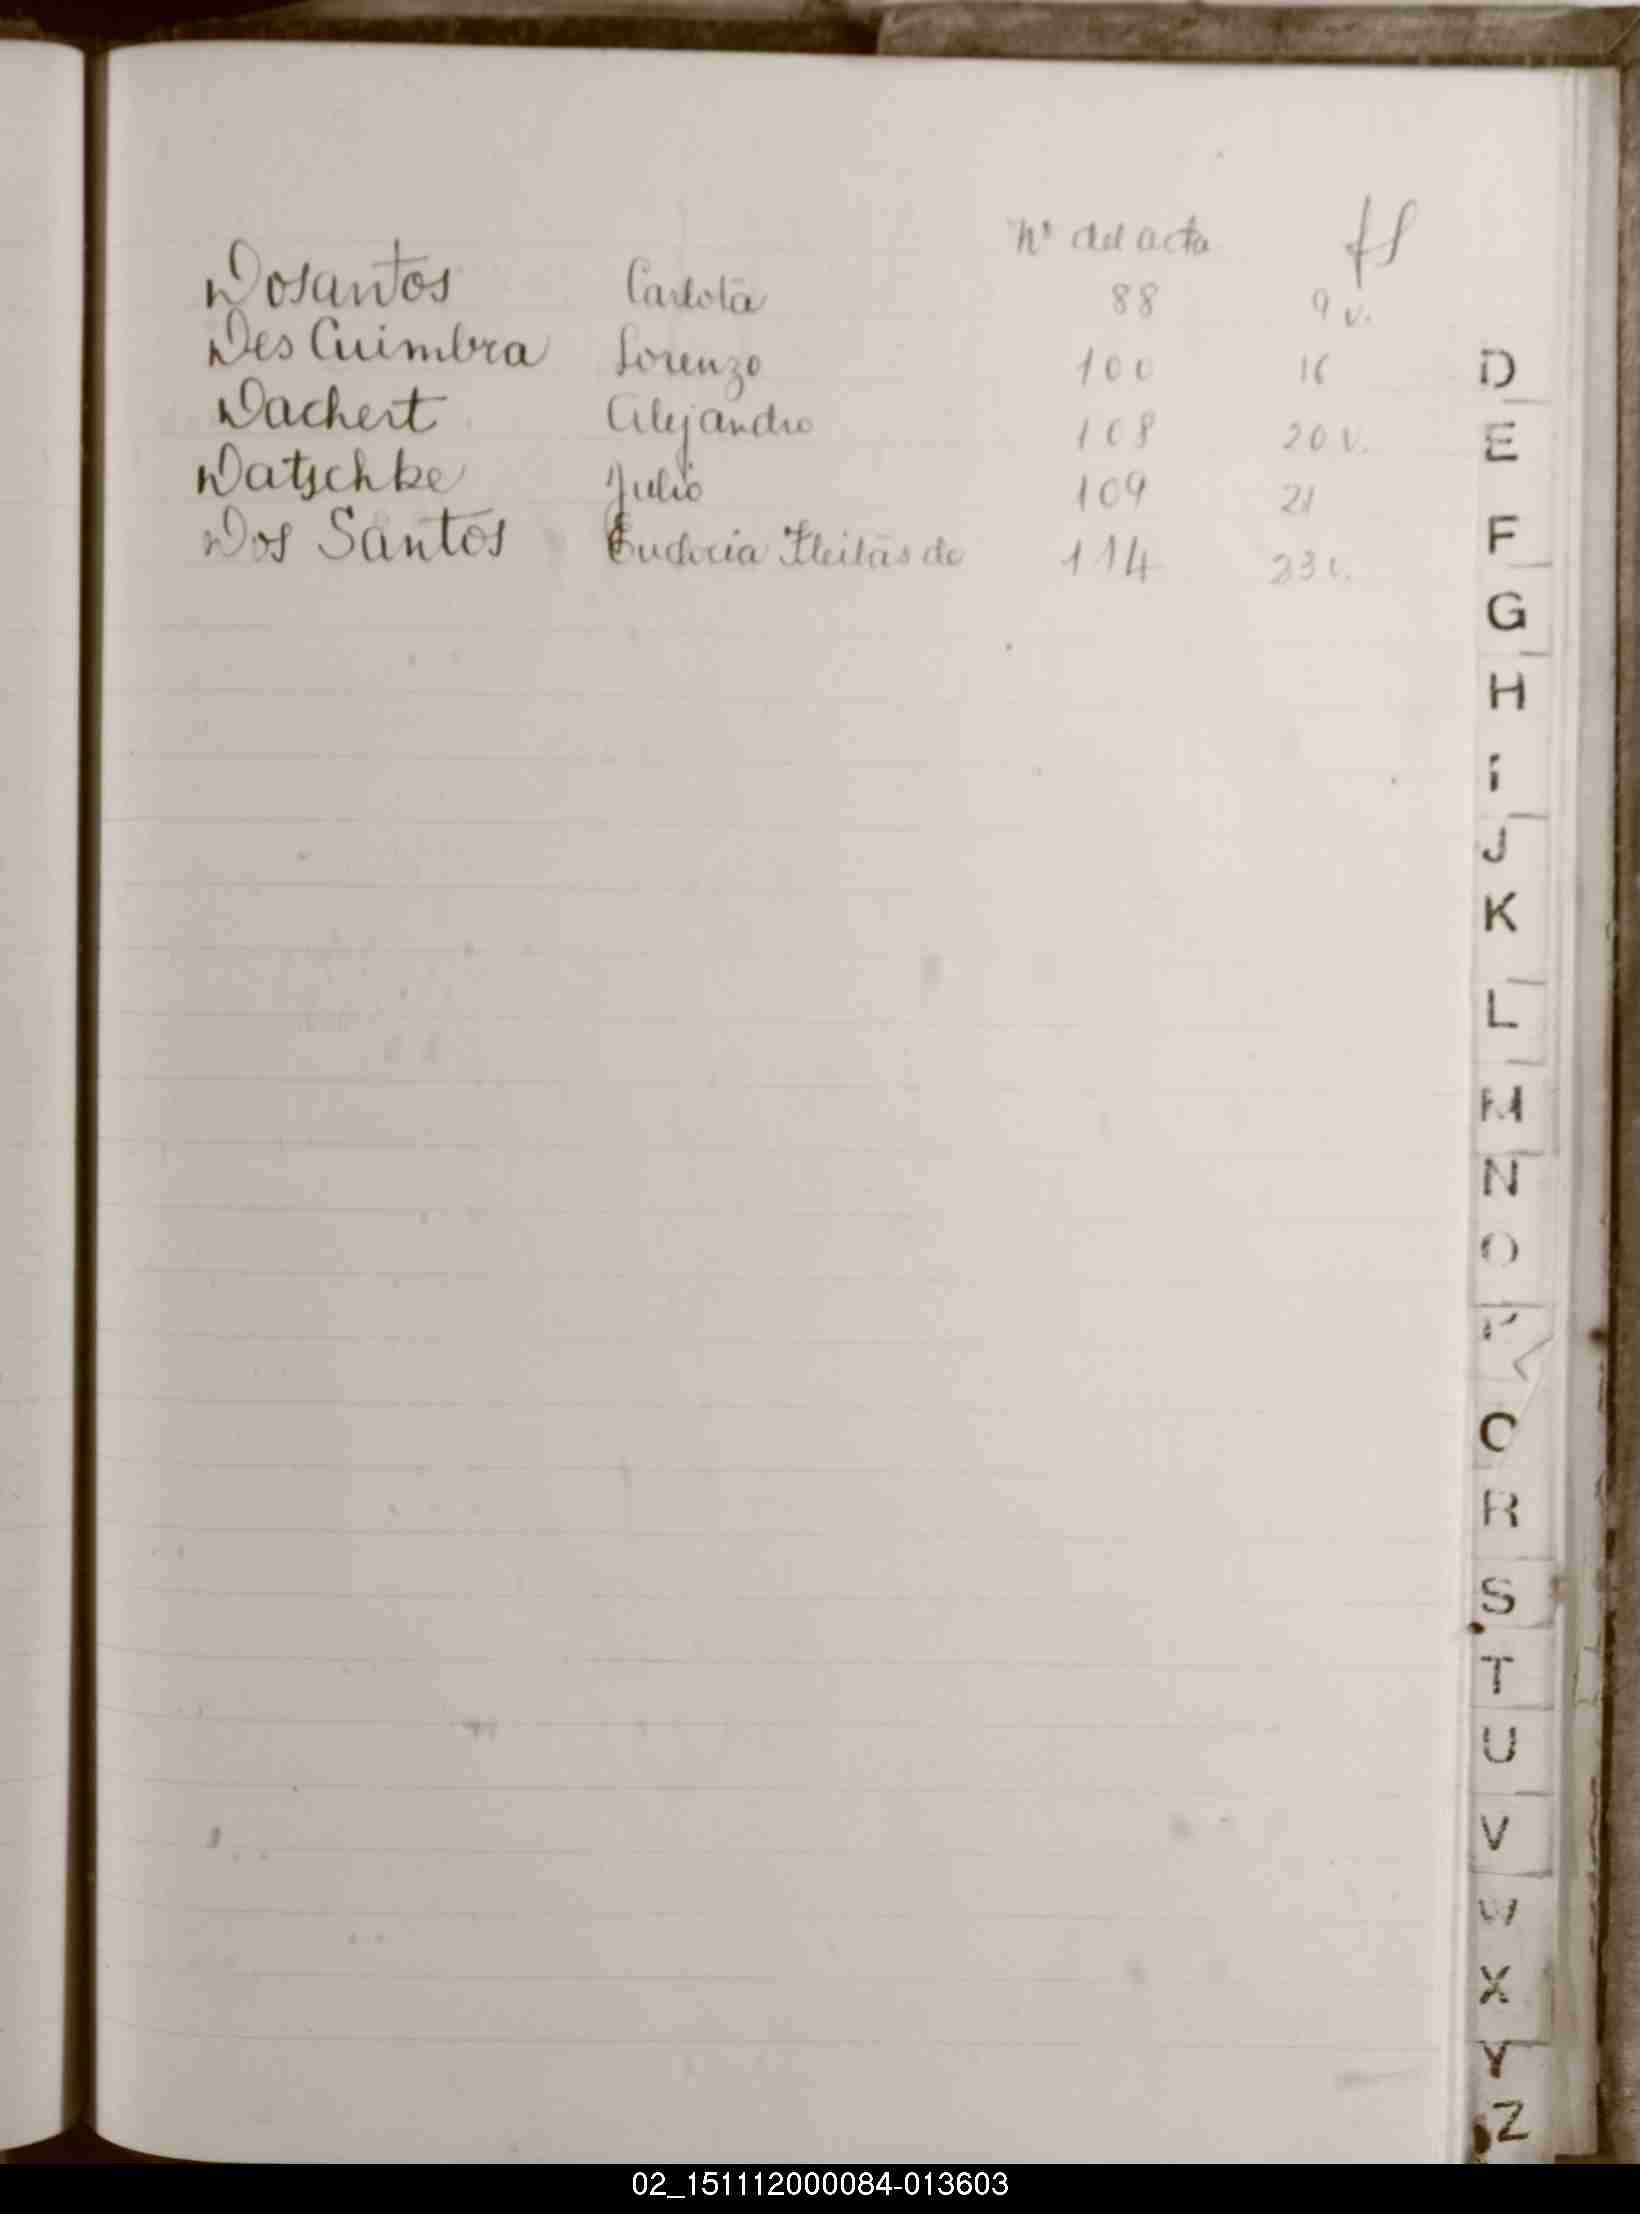 Nº del acta fs
Dosantos Carlota 88 9 v.
Des Cuimbra Lorenzo 100 16
Dachert Alejandro 108 20 v.
Datschke Julio 109 21
Dos Santos Eudocia Fleitas de 114 23 v.
D
E
F
G
H
I
J
K
L
M
N
O
P
Q
R
S
T
U
V
W
X
Y
Z
02_151112000084-013603